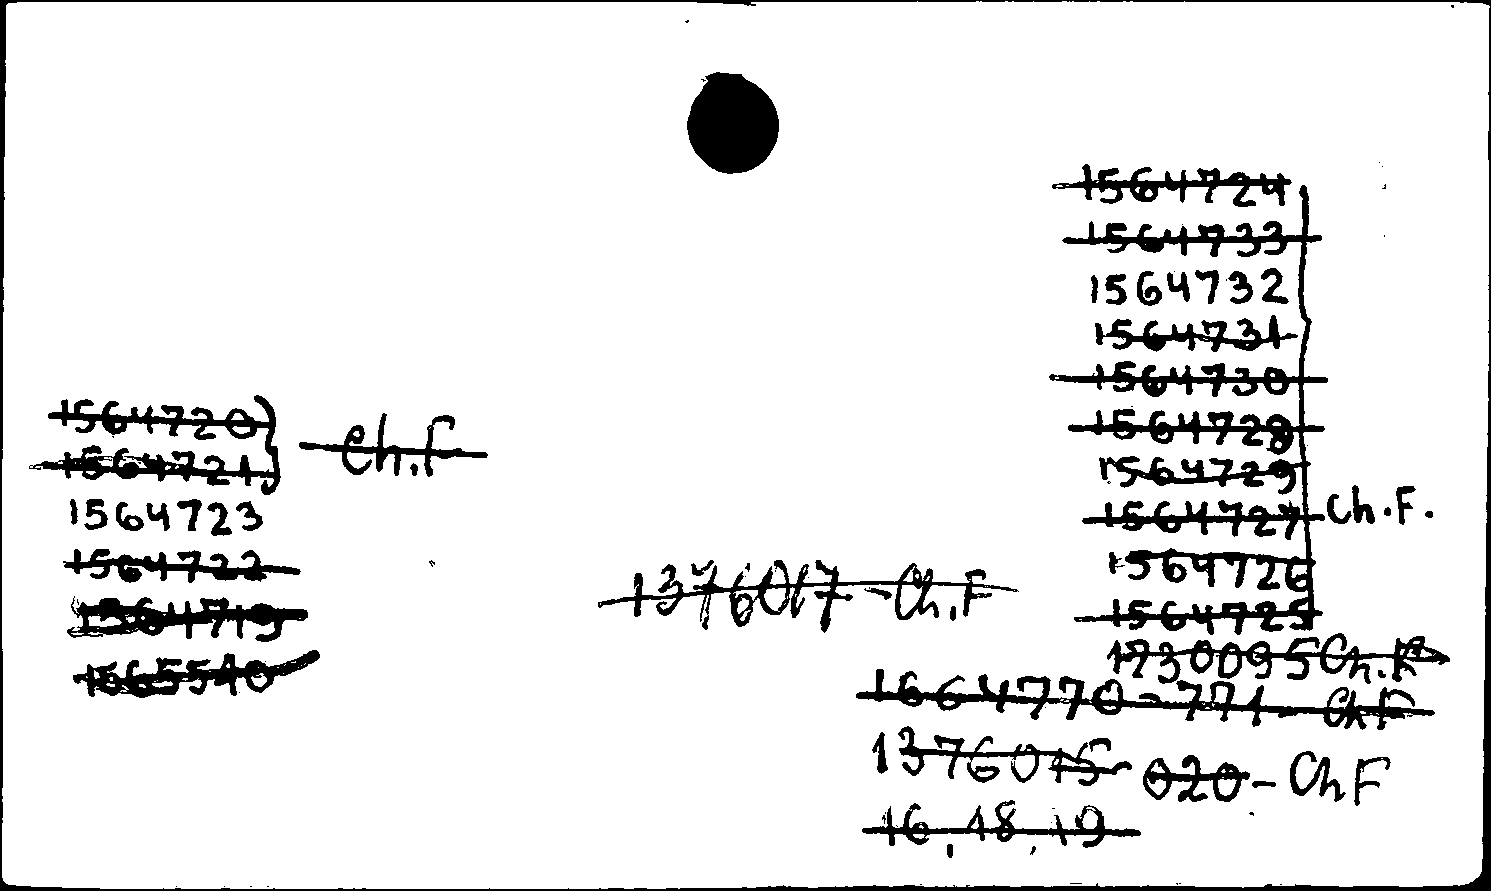 1564720
1564721 } Ch.F
1564723
1564722
1564719
1665540
1376017 - Ch.F
1564724
1564733
1564732
1564731
1564730
1564728
1564729
1564727 Ch.F.
1564726
1564725
1730095 Ch.F
1664770-771- ChF
1376015 020 - ChF
16, 18, 19